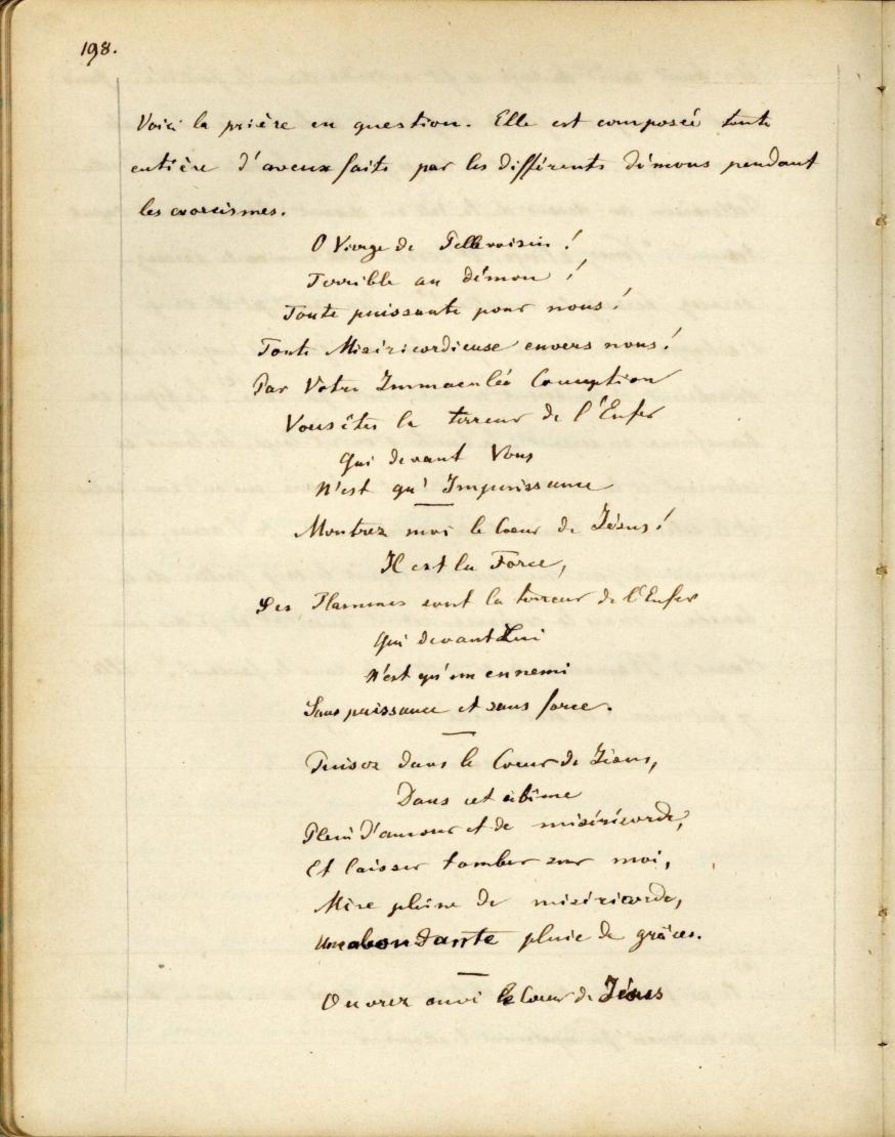 198.
Voici la prière en question. Elle est composée toute
entière d'aveux faits par les différents démons pendant
les exorcismes.
O Vierge de Pellevoisin !
Terrible au démon !
Toute puissante pour nous !
Toute Miséricordieuse envers nous !
Par Votre Immaculée Conception
Vous êtes la terreur de l'Enfer
Qui devant Vous
N'est qu' Impuissance
Montrez moi le Coeur de Jésus !
Il est la Force,
Ses Flammes sont la terreur de l'Enfer
Qui devant Lui
N'est qu'un ennemi
Sans puissance et sans force.
Puisez dans le Coeur de Jésus,
Dans cet abîme
Plein d'amour et de miséricorde,
Et laissez tomber sur moi,
Mère pleine de miséricorde,
Une abondante pluie de grâces.
Ouvrez moi le Coeur de Jésus